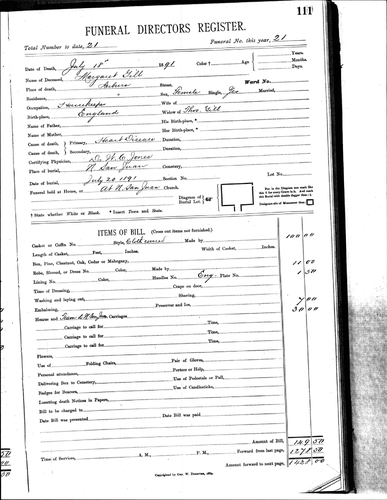 111
FUNERAL DIRECTORS REGISTER.
Total Number to date, 21 Funeral No. this year, 21
Date of Death, July 18th 1891 Color † Age Years.
Months.
Days.
Name of Deceased, Margaret Gill
Place of death, Auburn Street, Ward No.
Residence, " Sex, Female Single, Married,
Occupation, Housekeeper Wife of
Birth-place, England Widow of Thos. Gill
Name of Father, His Birth-place, *
Name of Mother, Her Birth-place, *
Cause of death, Primary, Heart Disease Duration,
Cause of death, Secondary, Duration,
Certifying Physician, Dr. W. C. Jones
Place of burial, N. San Juan Cemetery,
Date of burial, July 20 1891 Section No. Lot No.
Funeral held at Home, or At N. San Juan Church.
Diagram of Burial Lot
† State whether White or Black. * Insert Town and State.
ITEMS OF BILL. (Cross out items not furnished.)
Casket or Coffin No. Style, Cloth covered Made by 100 00
Length of Casket, Feet, Inches. Width of Casket, Inches.
Box, Pine, Chestnut, Oak, Cedar or Mahogany, 11 00
Robe, Shroud, or Dress No. Color, Made by
Lining No. Color, Handles No. Eng. Plate No. 1 50
Time of Dressing, Crape on door,
Washing and laying out, Shaving,
Embalming, Preserver and Ice, 7 00
Hearse and Carriages 30 00
Carriage to call for Time,
Carriage to call for Time,
Carriage to call for Time,
Carriage to call for Time,
Flowers,
Use of Folding Chairs, Pair of Gloves,
Personal attendance, Porters or Help,
Delivering Box to Cemetery, Use of Pedestals or Pall,
Badges for Bearers, Use of Candlesticks,
Inserting Death Notices in Papers,
Bill to be charged to
Date Bill was presented Date Bill was paid
Amount of Bill, 149 50
Time of Services, A. M., P. M. Forward from last page, 1278 50
Amount forward to next page, 1428 00